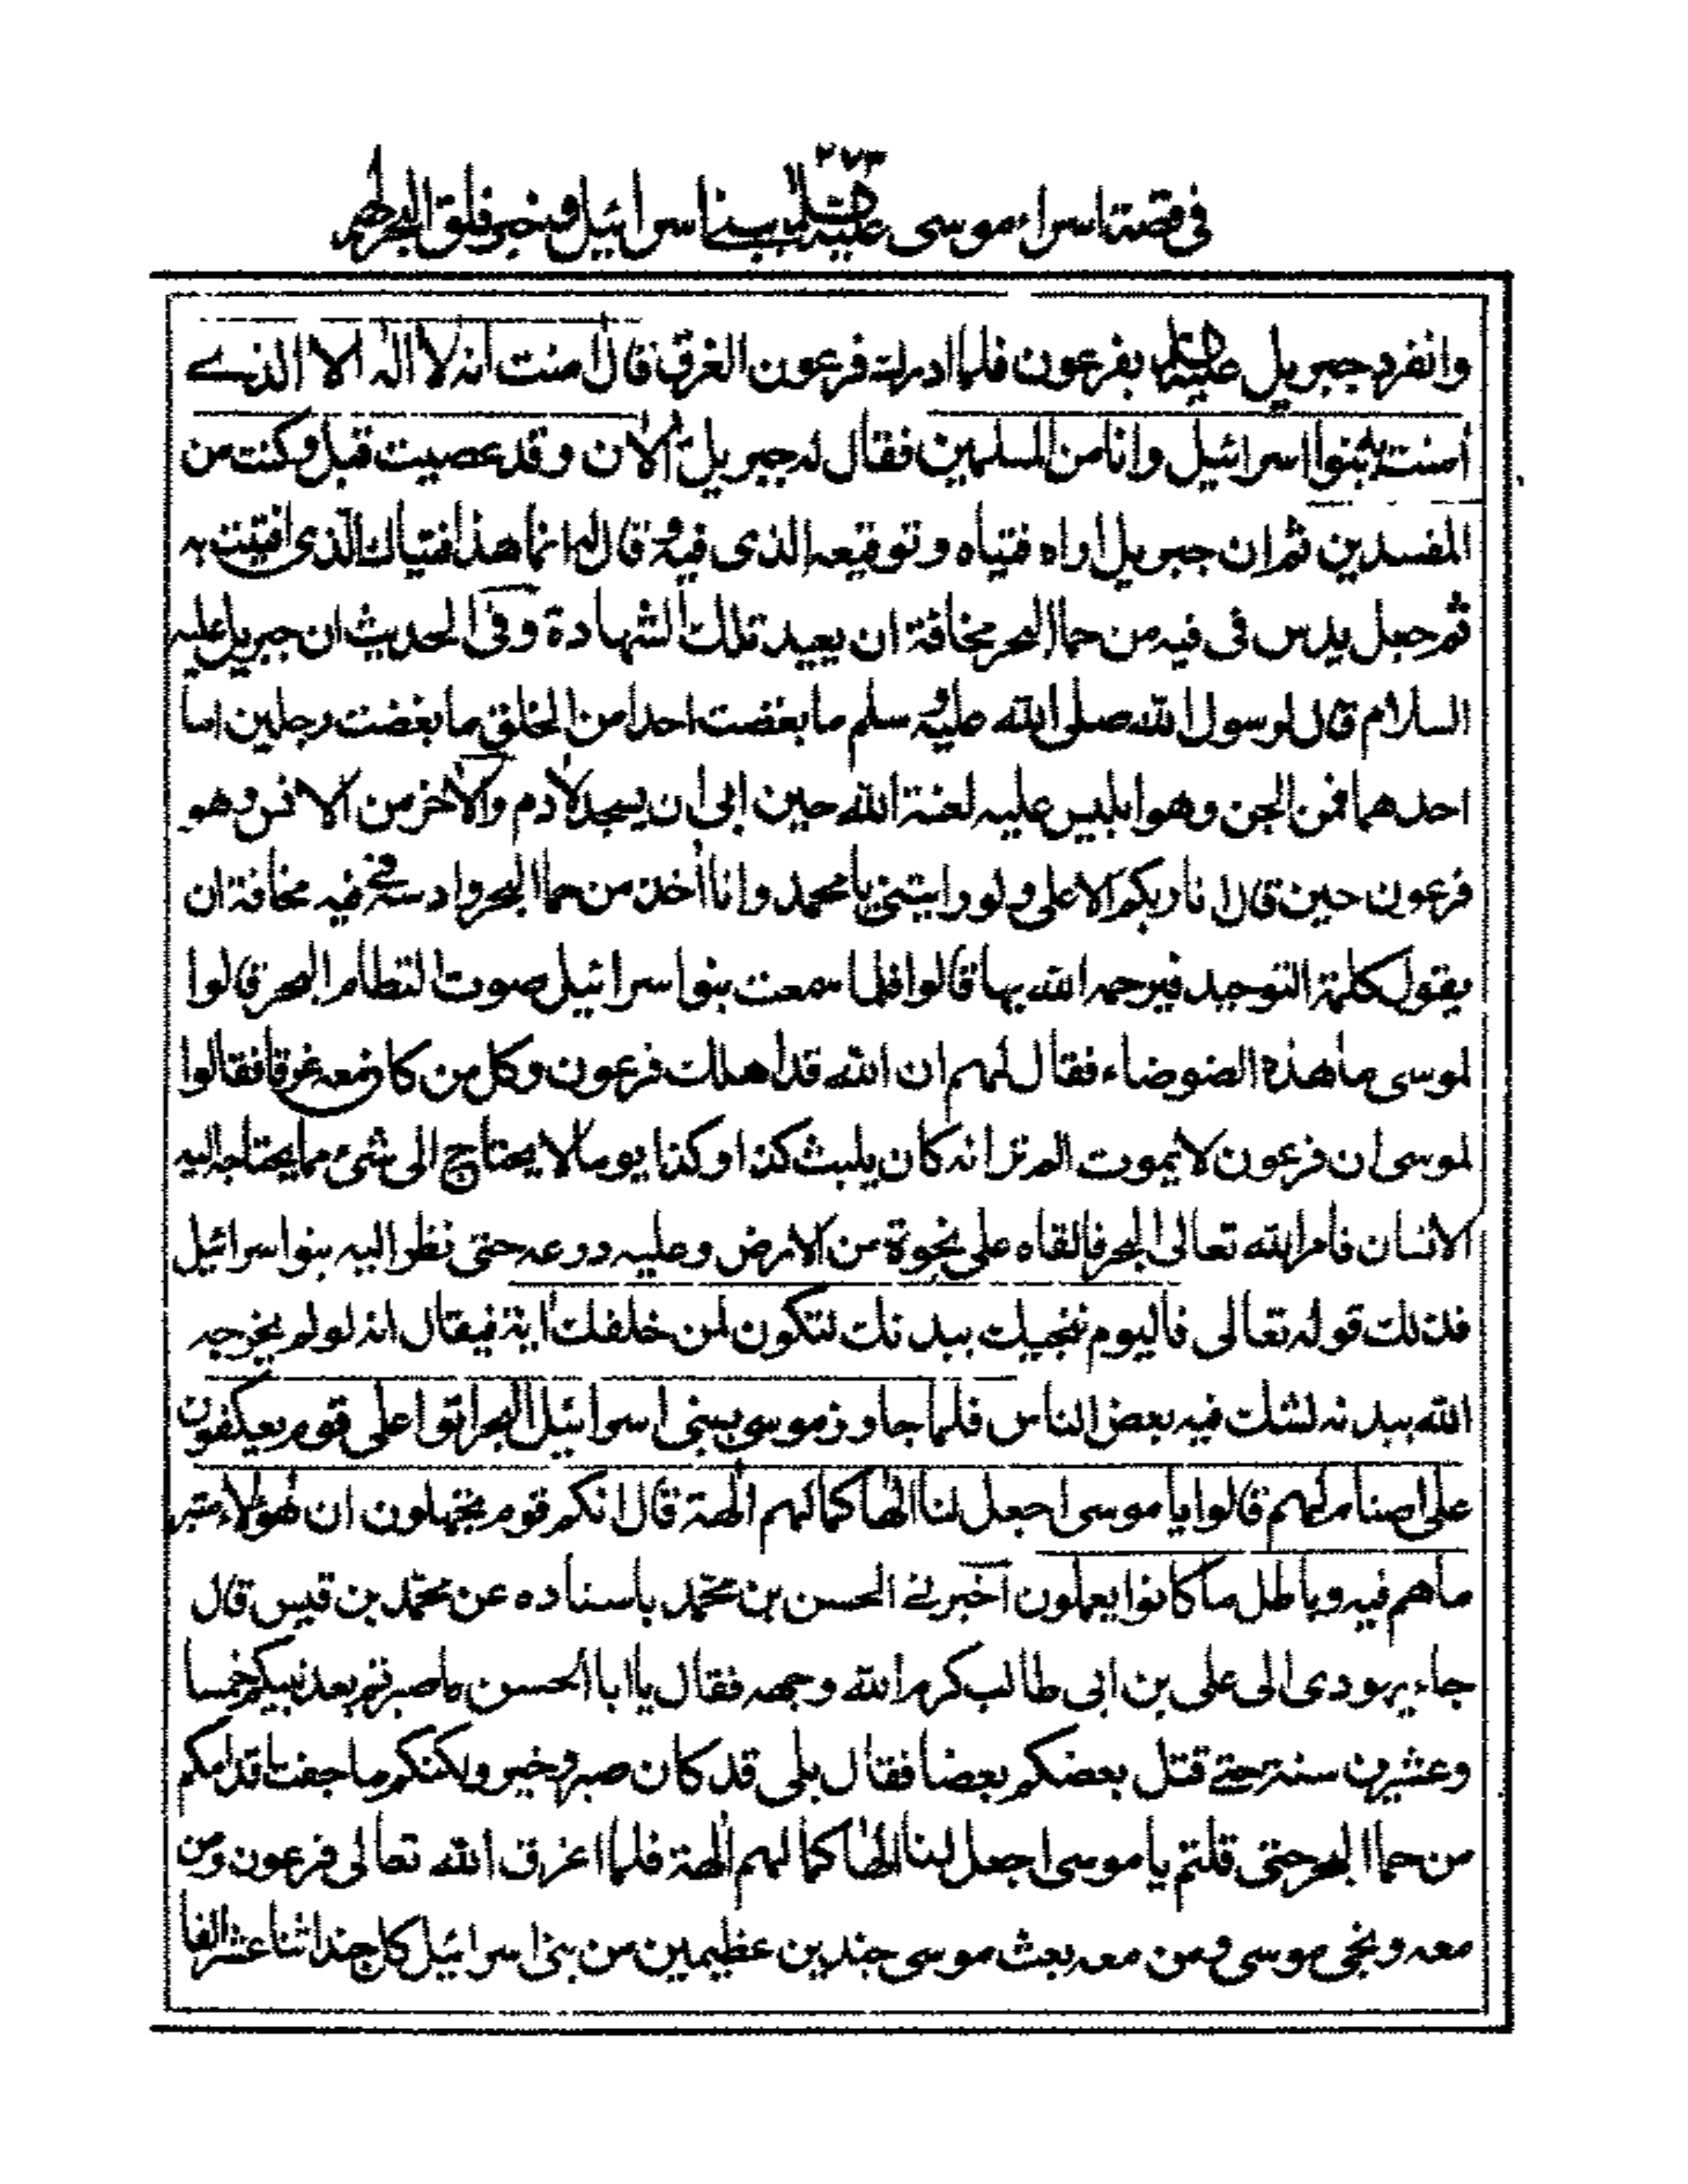 ٢٧٣
في قصة اسراء موسى عليه السلام ببني اسرائيل وخبر فلق البحر لهم
وانفرد جبريل عليه السلام بفرعون فلما ادركه فرعون الغرق قال امنت انه لا اله الا الذي
امنت به بنوا اسرائيل وانا من المسلمين فقال له جبريل الان وقد عصيت قبل وكنت من
المفسدين ثم ان جبريل اراه فتياه وتوقيعه الذي فيه وقال له انما هذا فتياك الذي افتيت به
ثم جعل يدس في فيه من حما البحر مخافة ان يعيد تلك الشهادة وفي الحديث ان جبريل عليه
السلام قال لرسول الله صلى الله عليه وسلم ما بغضت احدا من الخلق ما بغضت رجلين اما
احدهما فمن الجن وهو ابليس عليه لعنة الله حين ابى ان يسجد لادم والاخر من الانس وهو
فرعون حين قال انا ربكم الاعلى ولو رايتني يا محمد وانا اخذ من حما البحر وادسه في فيه مخافة ان
يقول كلمة التوحيد فيرحمه الله بها قالوا فلما سمعت بنوا اسرائيل صوت التطام البحر قالوا
لموسى ما هذه الضوضاء فقال لهم ان الله قد اهلك فرعون وكل من كان معه غرقا فقالوا
لموسى ان فرعون لا يموت الم تر انه كان يلبث كذا وكذا يوما لا يحتاج الى شئ مما يحتاج اليه
الانسان فامر الله تعالى البحر فالقاه على نجوة من الارض وعليه درعه حتى نظر اليه بنوا اسرائيل
فذلك قوله تعالى فاليوم ننجيك ببدنك لتكون لمن خلفك اية فيقال انه لو لم يخرجه
الله ببدنه لشك فيه بعض الناس فلما جاوز موسى ببني اسرائيل البحر اتوا على قوم يعكفون
على اصنام لهم قالوا يا موسى اجعل لنا الها كما لهم الهة قال انكم قوم تجهلون ان هؤلاء متبر
ما هم فيه وباطل ما كانوا يعملون اخبرني الحسن بن محمد باسناده عن محمد بن قيس قال
جاء يهودي الى علي بن ابي طالب كرم الله وجهه فقال يا ابا الحسن ما صبرتم بعد نبيكم خمسا
وعشرين سنة حتى قتل بعضكم بعضا فقال بلى قد كان صبر وخير ولكنكم ما جفت اقدامكم
من حما البحر حتى قلتم يا موسى اجعل لنا الها كما لهم الهة فلما اغرق الله تعالى فرعون ومن
معه ونجى موسى ومن معه بعث موسى جندين عظيمين من بني اسرائيل كل جند اثنا عشر الفا